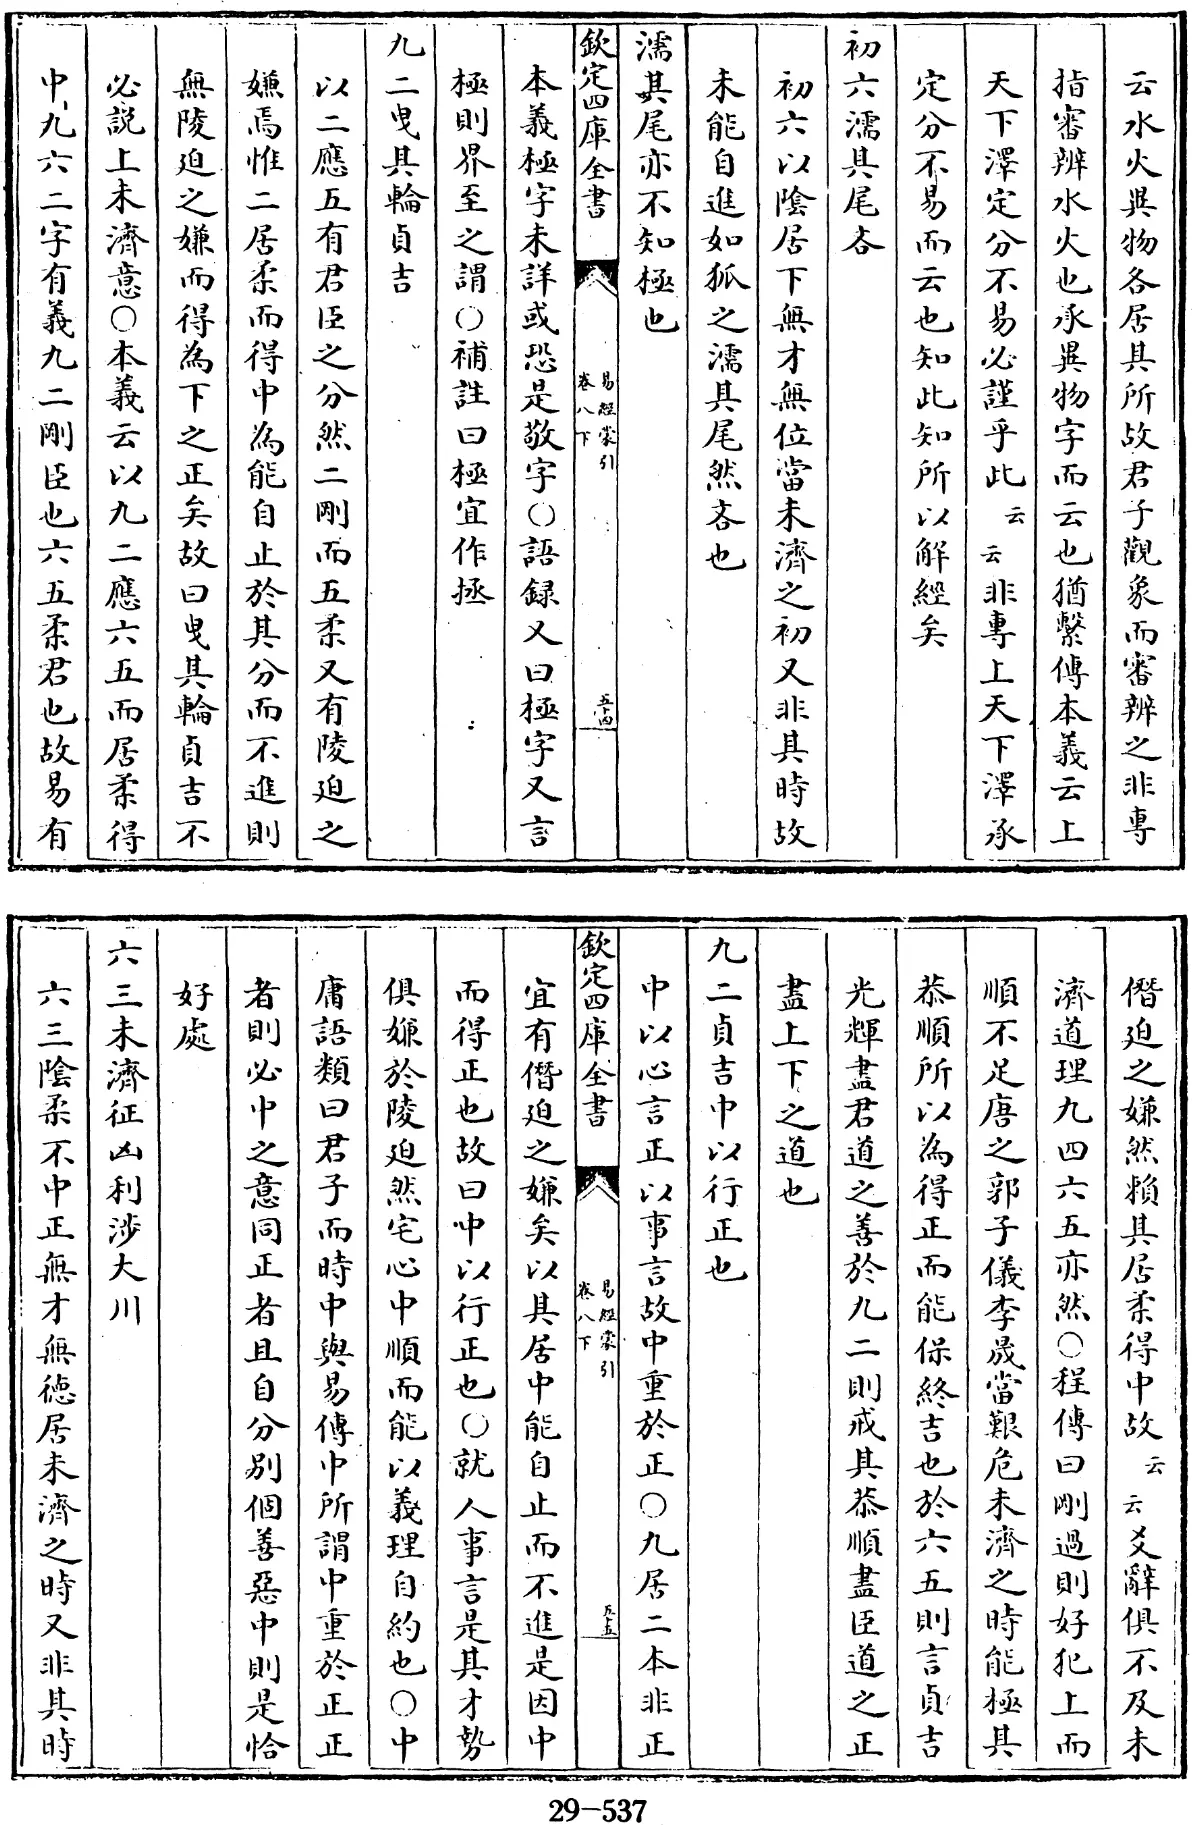 云水火異物各居其所故君子觀象而審辨之非專
指審辨水火也承異物字而云也猶繫傳本義云上
天下澤定分不易必謹乎此云云非專上天下澤承
定分不易而云也知此知所以解經矣
初六濡其尾吝
初六以隂居下無才無位當未濟之初又非其時故
未能自進如狐之濡其尾然吝也
濡其尾亦不知極也
欽定四庫全書
易經蒙引
卷八下
五十四
本義極字未詳或恐是敬字○語録又曰極字又言
極則界至之謂○補註曰極宜作拯
九二曳其輪貞吉
以二應五有君臣之分然二剛而五柔又有陵迫之
嫌焉惟二居柔而得中為能自止於其分而不進則
無陵迫之嫌而得為下之正矣故曰曳其輪貞吉不
必説上未濟意○本義云以九二應六五而居柔得
中九六二字有義九二剛臣也六五柔君也故易有
僭迫之嫌然賴其居柔得中故云云爻辭俱不及未
濟道理九四六五亦然○程傳曰剛過則好犯上而
順不足唐之郭子儀李晟當艱危未濟之時能極其
恭順所以為得正而能保終吉也於六五則言貞吉
光輝盡君道之善於九二則戒其恭順盡臣道之正
盡上下之道也
九二貞吉中以行正也
中以心言正以事言故中重於正○九居二本非正
欽定四庫全書
易經蒙引
卷八下
五十五
宜有僭迫之嫌矣以其居中能自止而不進是因中
而得正也故曰中以行正也○就人事言是其才勢
俱嫌於陵迫然宅心中順而能以義理自約也○中
庸語類曰君子而時中與易傳中所謂中重於正正
者則必中之意同正者且自分别個善惡中則是恰
好處
六三未濟征凶利涉大川
六三隂柔不中正無才無德居未濟之時又非其時
29-537